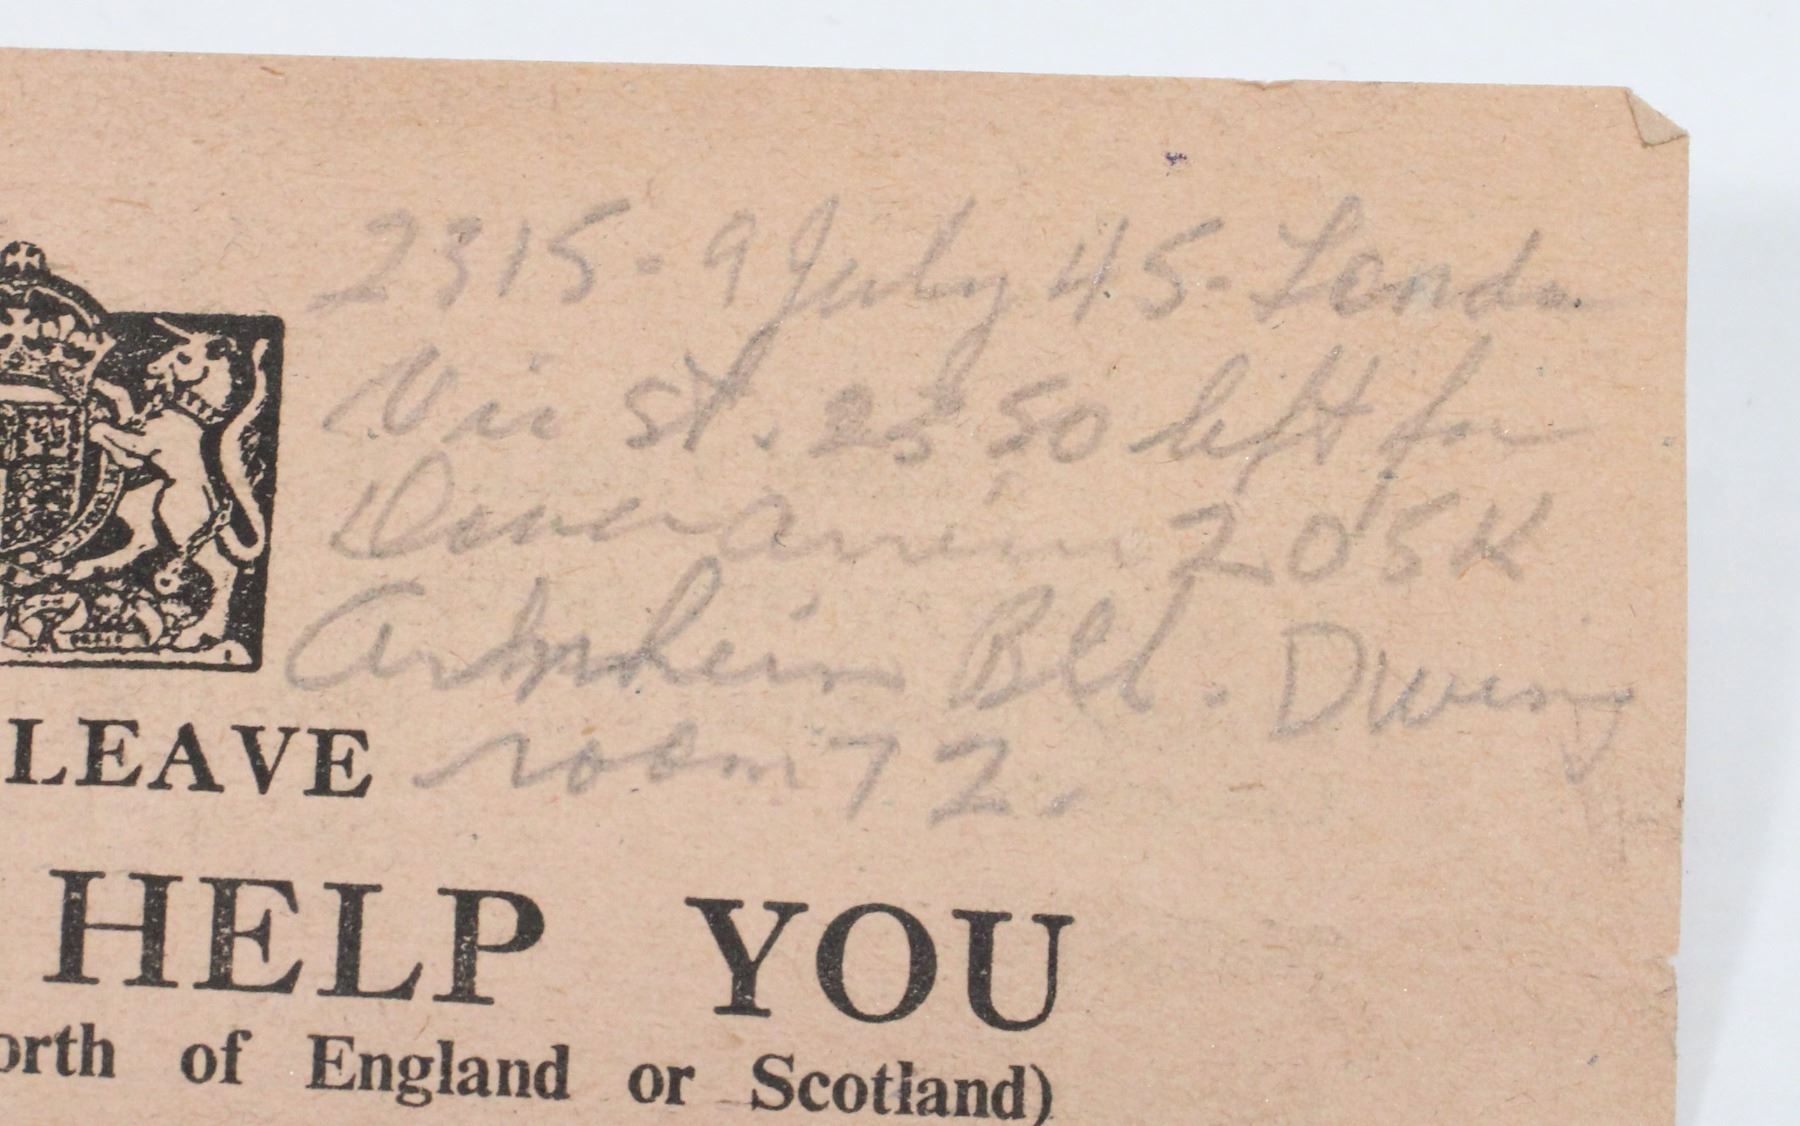 2315 - 9 July 45 - London
Vic St. 2350 left for
Dover arrive 205K
Arnheim Bld.
room 72.
LEAVE
HELP YOU
orth of England or Scotland)